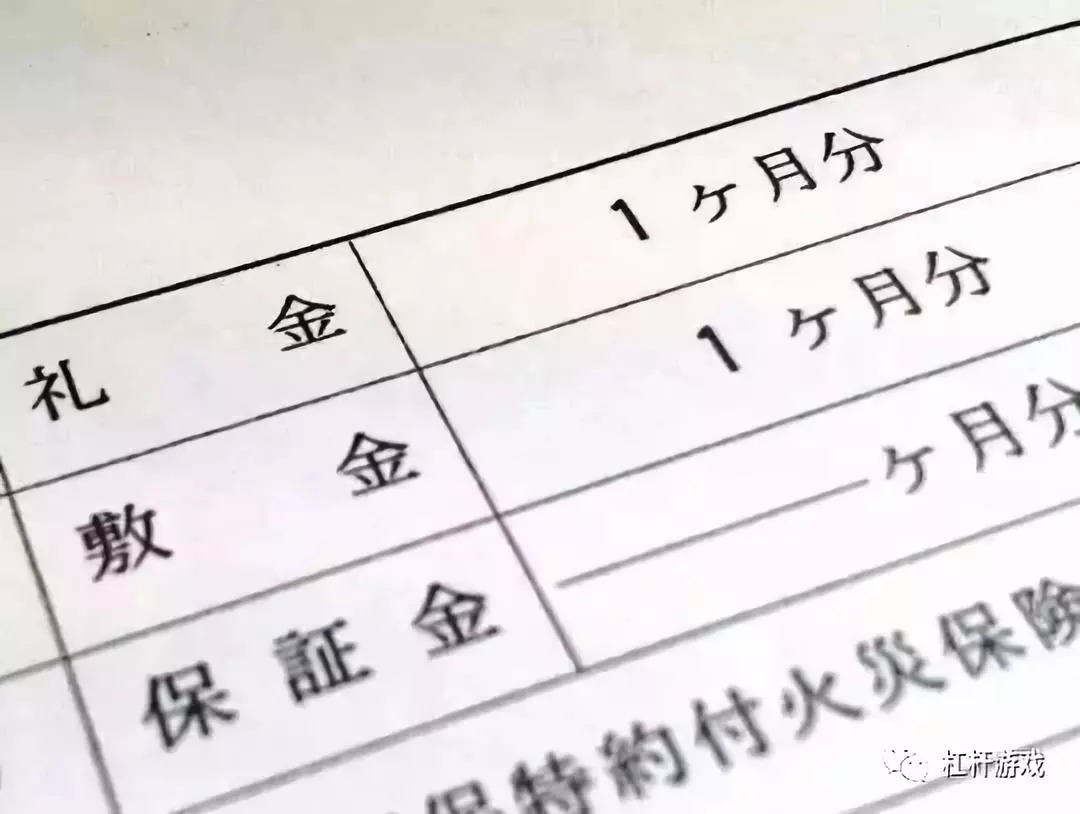 礼金 1ヶ月分
敷金 1ヶ月分
保証金 ――ヶ月分
保特約付火災保険
杠杆游戏